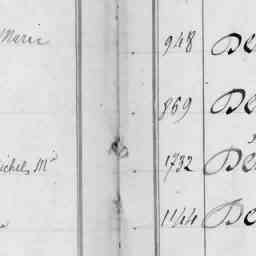 Marie 948 De
869 De
Michel, Md 1732 De
1144 De